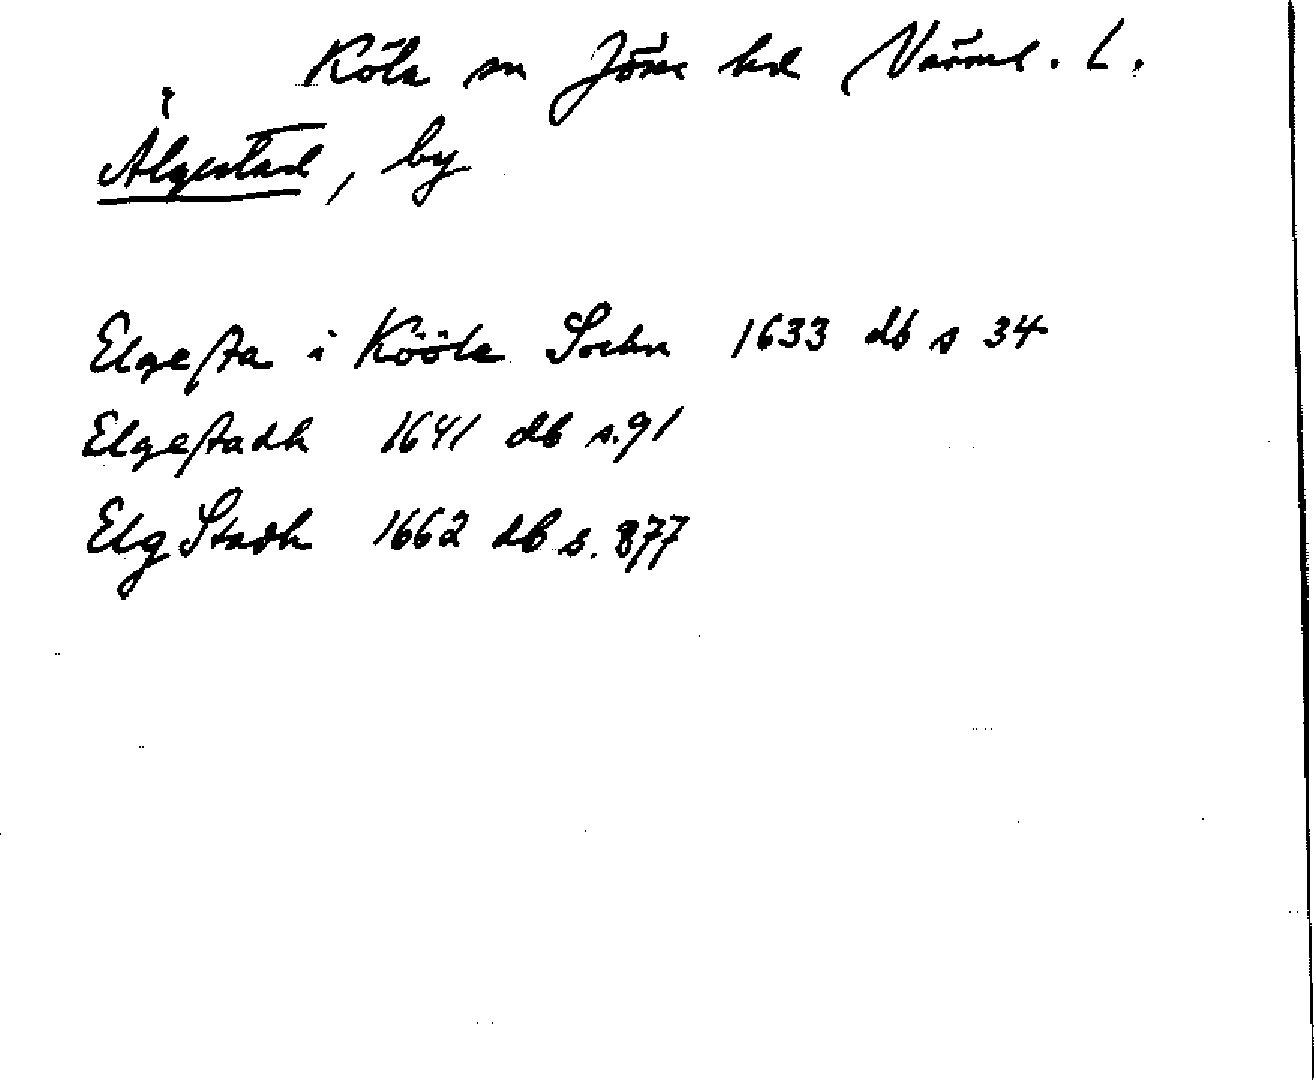 Köla sn Jösse hd Värml. L.
Älgestad, by
Elgesta i Kööla Sochn 1633 db s 34
Elgestadh 1641 db s. 91
Elg Stadh 1662 db s. 877